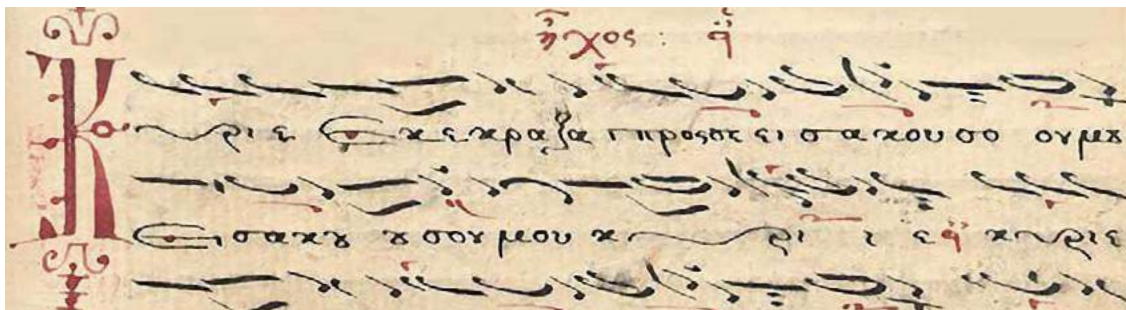 ἦχος α
Κύριε Εκεκραξα προςσε εισακουσο ουμου
Εισακου ουσουμου κυρι ι ε α κυριε